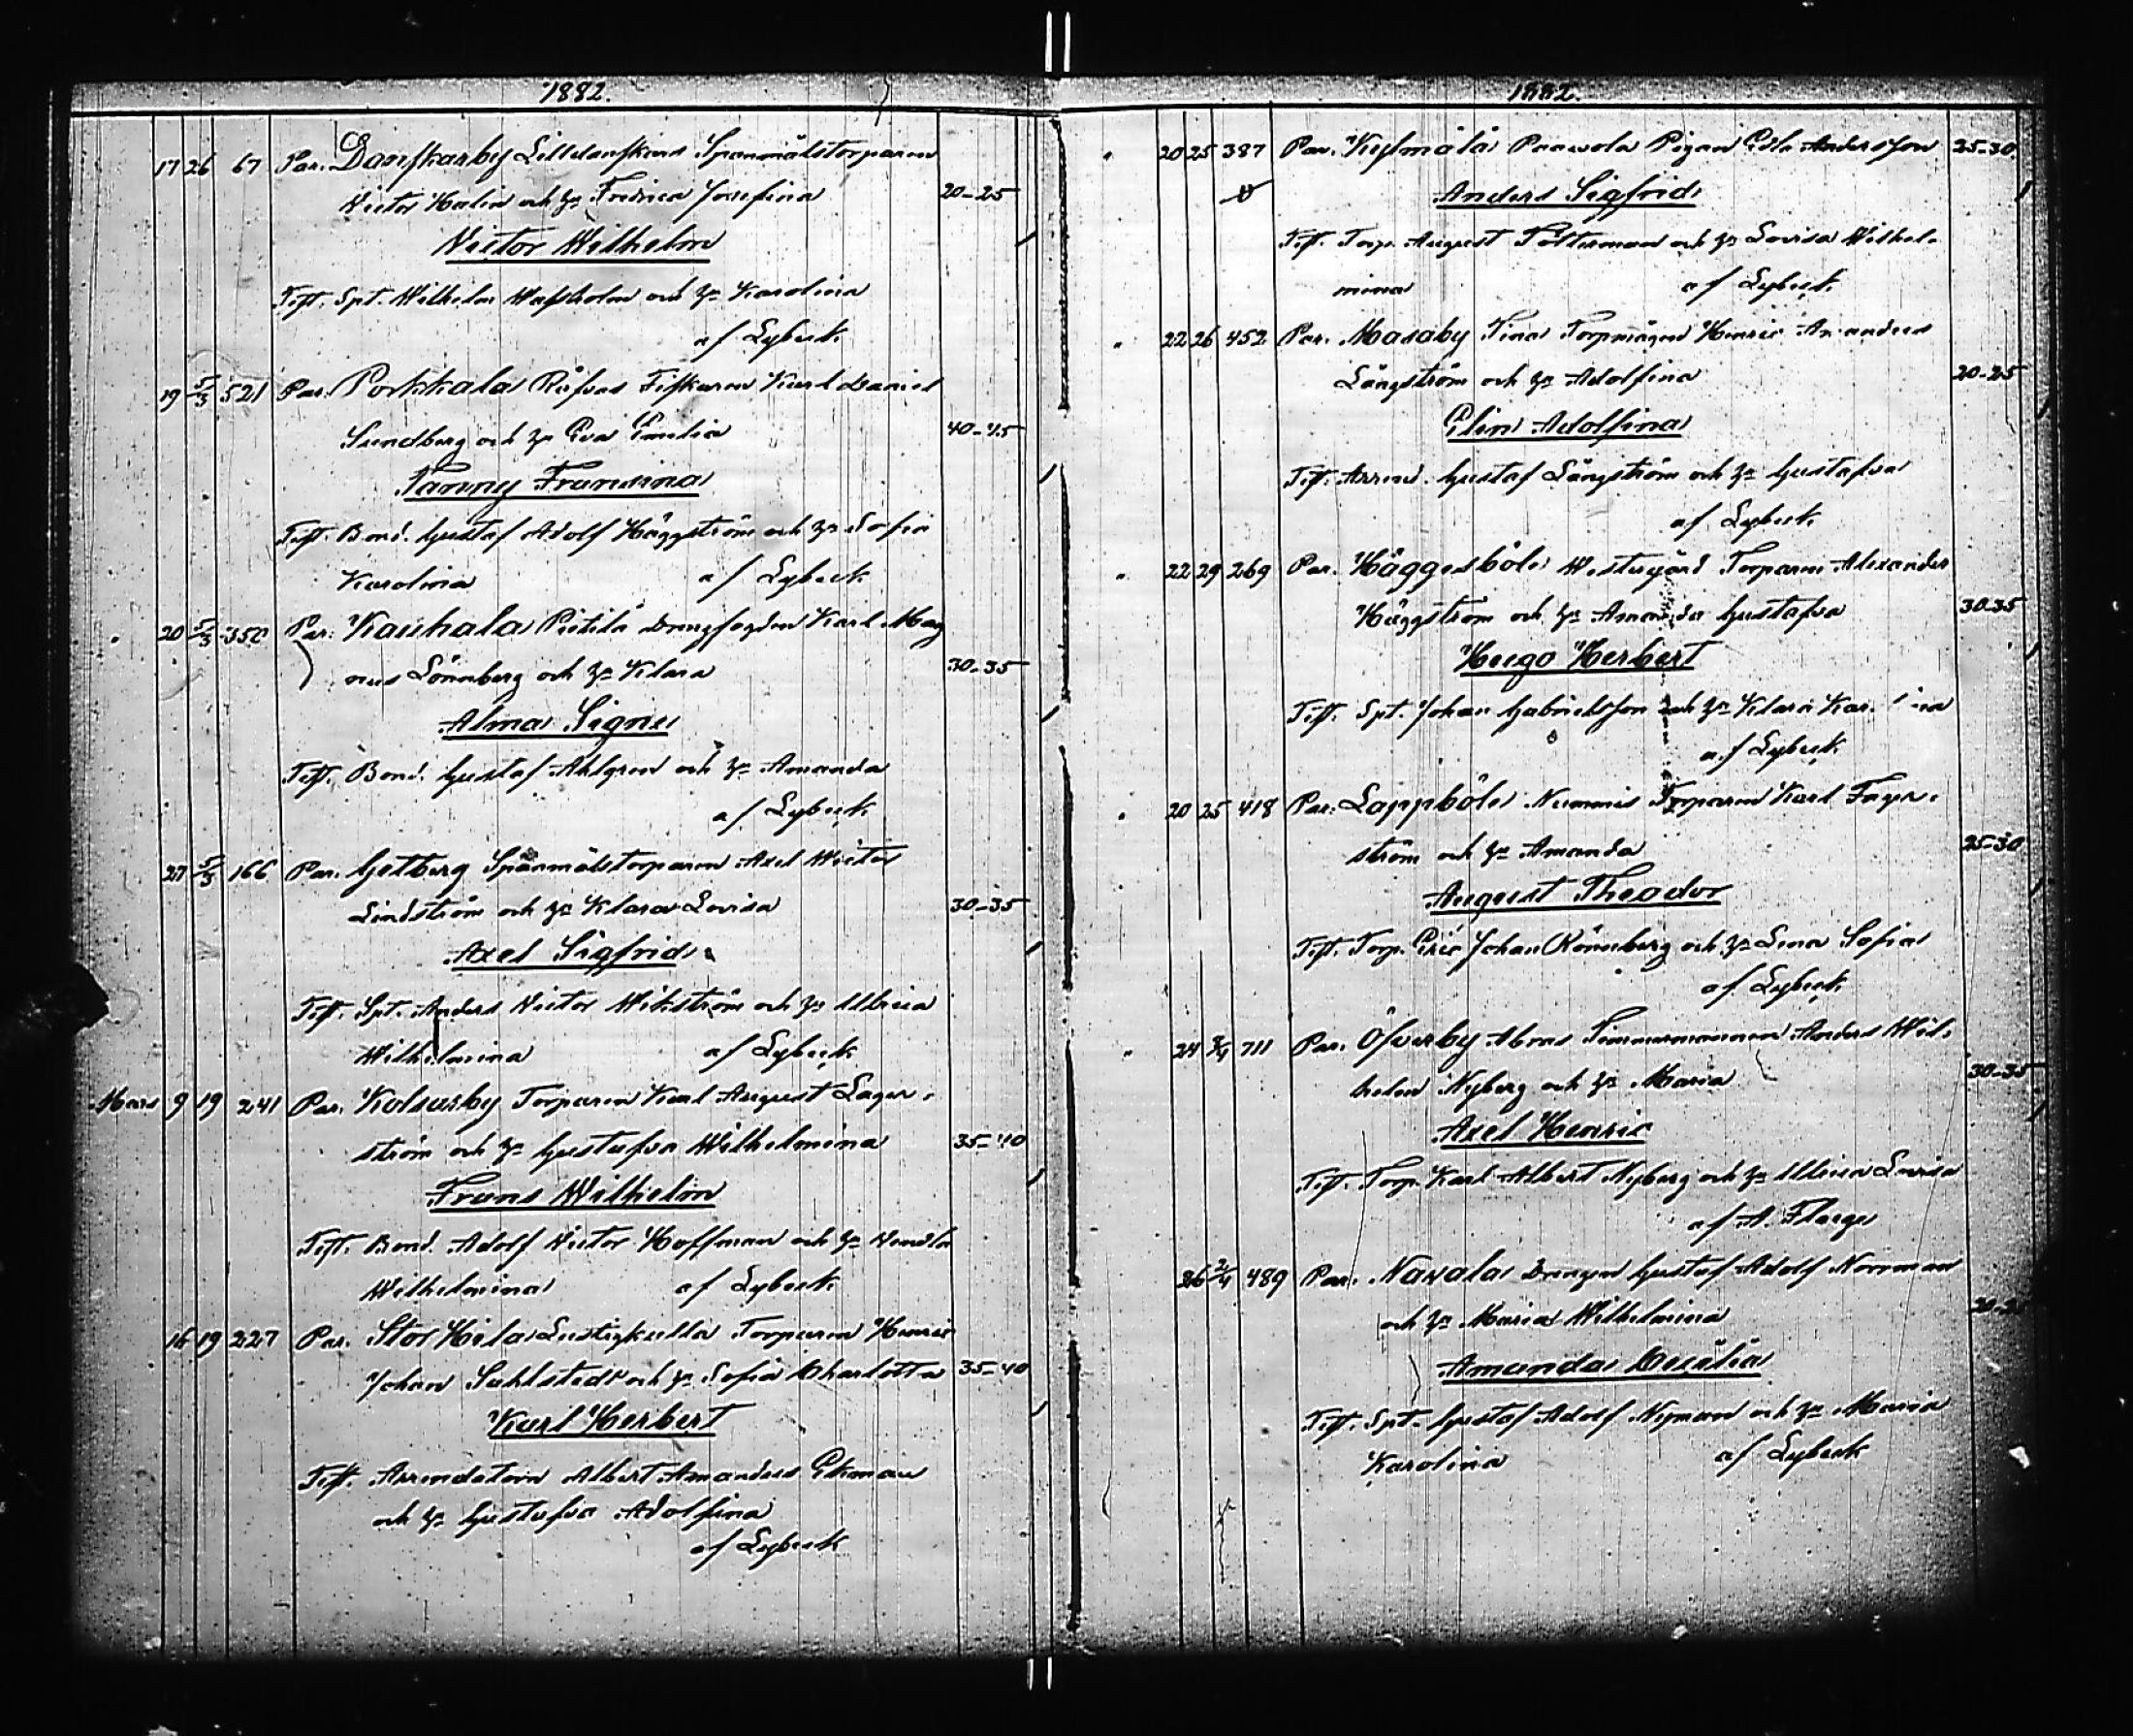 1882.
17 26 67 Par. Danskarby Lilldanskas Spanmålstorparen
Victor Malin och h. Fredrica Josefina 20-25
Victor Wilhelm
Test. Spt. Wilhelm Wassholm och h. Karolina
af Lybeck.
19 5/3 521 Par. Porkkala Räfvas Fiskaren Karl Daniel
Sundberg och h. Eva Emilia 40-45
Fanny Fransina
Test. Bond. Gustaf Adolf Häggström och h. Sofia
Karolina af Lybeck
" 20 5/3 350 Par. Kauhala Pietilä Drengfogden Karl Mag
nus Lönnberg och h. Klara 30-35
Alma Signe
Test. Bond. Gustaf Ahlgren och h. Amanda
af Lybeck
27 5/3 166 Par. Getberg Spanmålstorparen Axel Victor
Lindström och h. Klara Lovisa 30-35
Axel Sigfrid
Test. Spt. Anders Victor Wikström och h. Ulrica
Wilhelmina af Lybeck
Mars 9 19 241 Par. Kolsarby Torparen Karl August Lager-
ström och h. Gustafva Wilhelmina 35-40
Frans Wilhelm
Test. Bond. Adolf Victor Hoffman och h. Wendla
Wilhelmina af Lybeck
16 19 227 Par. Stor Hila Lustigkulla Torparen Henric
Johan Sahlstedt och h. Sofia Charlotta 35-40
Karl Herbert
Test. Arrendatorn Albert Amandus Ekman
och h. Gustafva Adolfina
af Lybeck
1882.
" 20 25 387 Par. Kylmälä Paavola Pigan Edla Andersson 25-30
Anders Sigfrid
Test. Torp. August Fölterman och h. Lovisa Wilhel-
mina af Lybeck.
" 22 26 452 Par. Masaby Finas Torpmågen Henric Amandus
Långström och h. Adolfina 20-25
Elin Adolfina
Test. Arrend. Gustaf Långström och h. Gustafva
af Lybeck
" 22 29 269 Par. Häggesböle Westergård Torparen Alexander
Häggström och h. Amanda Gustafva 30-35
Hugo Herbert
Test. Spt. Johan Gabrielsson och h. Klara
af Lybeck
" 20 25 418 Par. Lappböle Nummis Torparen Karl Fager-
ström och h. Amanda 25-30
August Theodor
Test. Torp. Eric Johan Rönnberg och h. Lena Sofia
af Lybeck
" 24 2/4 711 Par. Öfverby Abras Timmermannen Anders Wil-
helm Nyberg och h. Maria 30-35
Axel Henric
Test. Torp. Karl Albert Nyberg och h. Ulrica Lovisa
af A. Florge
26 2/4 489 Par. Navala Drengen Gustaf Adolf Norrman
och h. Maria Wilhelmina
Amanda Cecilia
Test. Spt. Gustaf Adolf Nyman och h. Maria
Karolina af Lybeck